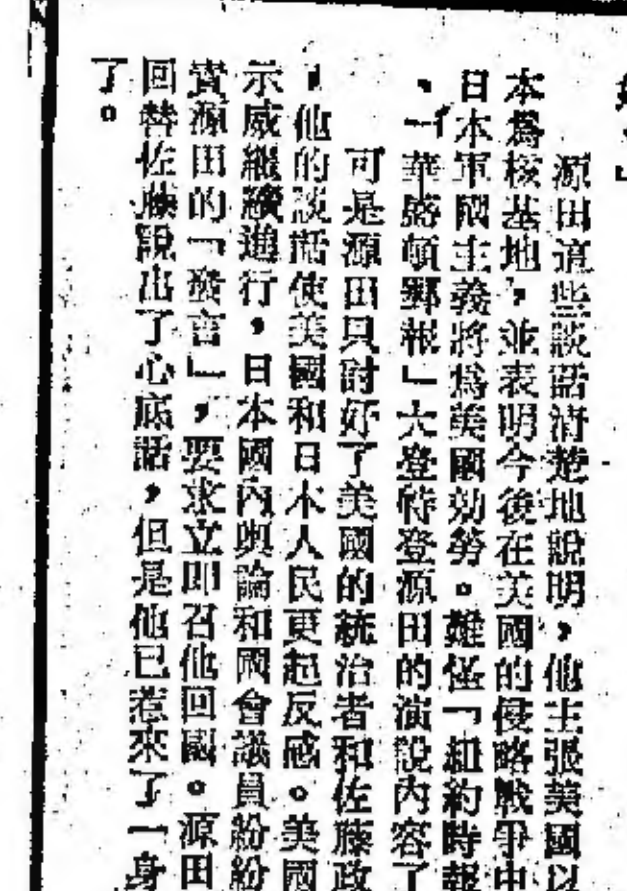 源田這些談話清楚地說明，他主張美國以
本爲核基地，並表明今後在美國的侵略戰爭中
日本軍國主義將爲美國効勞。難怪「紐約時報
、「華盛頓郵報」大登特登源田的演說內容了
可是源田只討好了美國的統治者和佐藤政
，他的談話使美國和日本人民更起反感。美國
示威繼續進行，日本國內輿論和國會議員紛紛
責源田的「發言」，要求立即召他回國。源田
回替佐藤說出了心底話，但是他已惹來了一身
了。